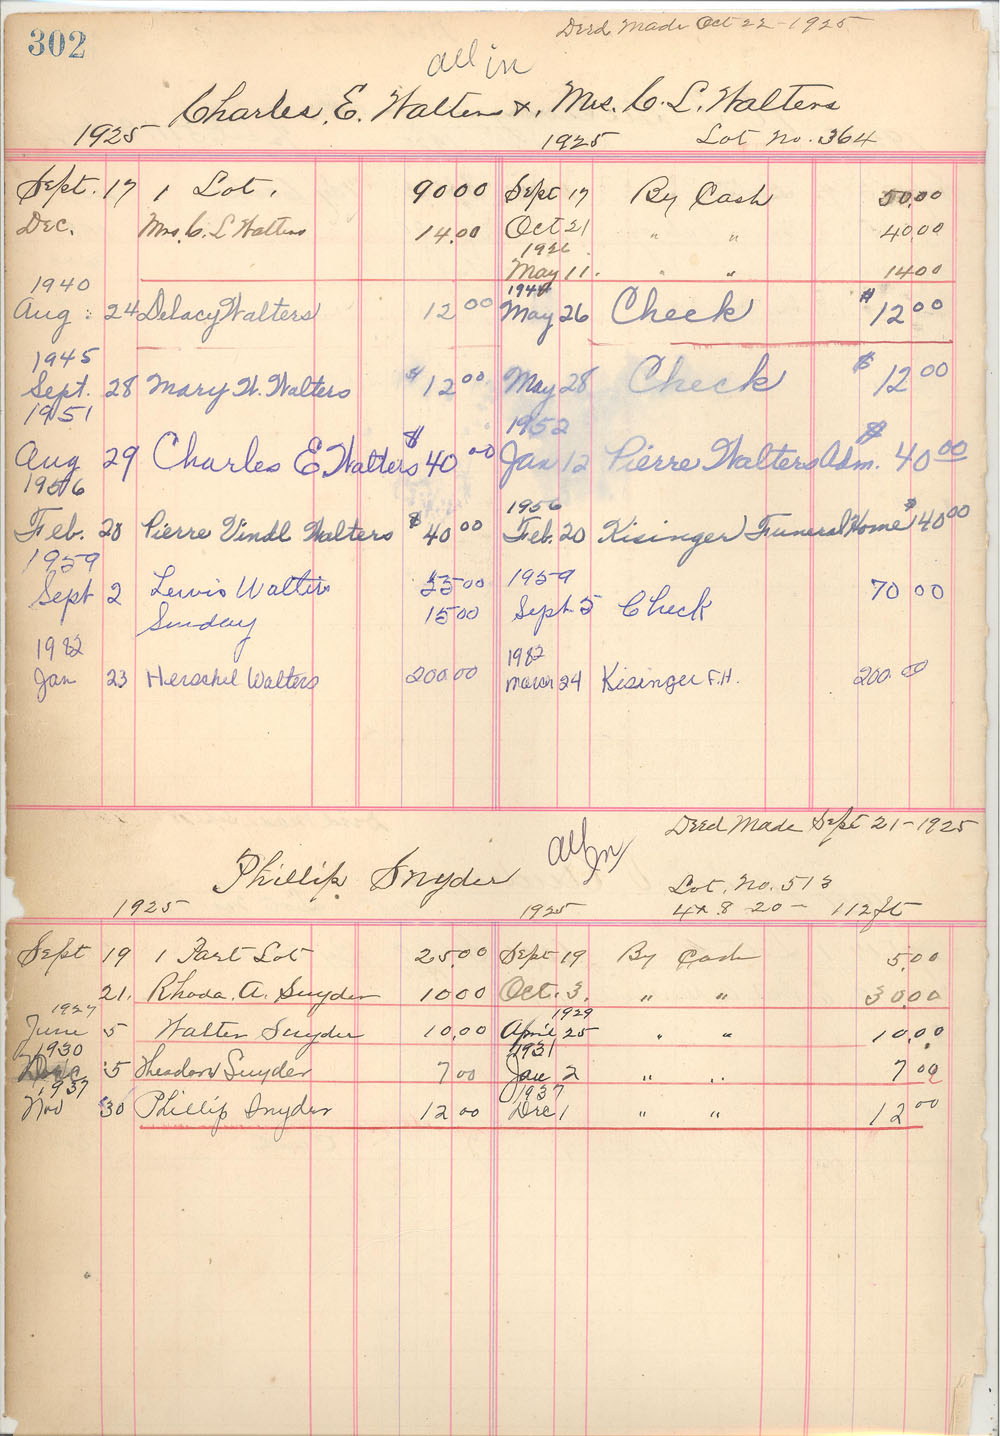 302
Deed Made Oct 22-1925
all in
Charles. E. Walters &. Mrs. C. L. Walters
1925 1925 Lot No. 364
Sept. 17 1 Lot. 90 00 Sept 17 By Cash 50.00
Dec. Mrs. C. L Walters 14.00 Oct 21 " " 40.00
1926
May 11. " " 14 00
1940
Aug. 24 Delacy Walters 12 00 May 26 Check $ 12 00
1945
Sept. 28 Mary W. Walters $ 12 00 May 28 Check $ 12 00
1951 1952
Aug 29 Charles E Walters $ 40 00 Jan 12 Pierre Walters Adm. $ 40 00
1956 1956
Feb. 20 Pierre Vindl Walters $ 40 00 Feb. 20 Kisinger Funeral Home $ 40 00
1959 1959
Sept 2 Lewis Walters 00 Sept. 5 Check 70 00
Sunday 15 00
1982 1982
Jan 23 Herschel Walters 200.00 March 24 Kisinger F.H. 200.00
Deed Made Sept 21-1925
all in
Phillip Snyder
Lot. No. 513
1925 1925 4x8 20- 112 ft
Sept 19 1 Part Lot 25.00 Sept 19 By Cash 5.00
21. Rhoda. A. Snyder 10 00 Oct. 3. " " 30.00
1927 1929
June 5 Walter Snyder 10.00 April 25 " " 10.00
1930 1931
5 Theadore Snyder 7 00 Jan 2 " " 7 00
1937 1937
Nov 30 Phillip Snyder 12 00 Dec 1 " " 12 00